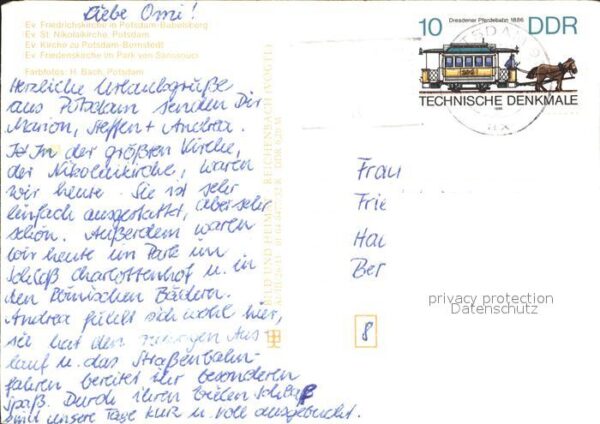 Liebe Omi!
Ev. Friedrichskirche in Potsdam-Babelsberg
Ev. St. Nikolaikirche, Potsdam
Ev. Kirche zu Potsdam-Bornstedt
Ev. Friedenskirche im Park von Sanssouci
Farbfotos: H. Bach, Potsdam
Herzliche Urlaubsgrüße
aus Potsdam senden Dir
Marion, Steffen + Andrea.
In der größten Kirche,
der Nikolaikirche, waren
wir heute. Sie ist sehr
einfach ausgestattet, aber sehr
schön. Außerdem waren
wir heute im Park im
Schloß Charlottenhof u. in
den Römischen Bädern.
Andrea fühlt sich wohl hier,
sie hat den nötigen Aus-
lauf u. das Straßenbahn-
fahren bereitet ihr besonderen
Spaß. Durch ihren vielen Schlaf
sind unsere Tage kurz u. voll ausgebucht.
BILD UND HEIMAT REICHENBACH (VOGTL)
10
Dresdener Pferdebahn 1886
DDR
TECHNISCHE DENKMALE
1986
Frau
Frie
Hai
Ber
privacy protection
Datenschutz
8